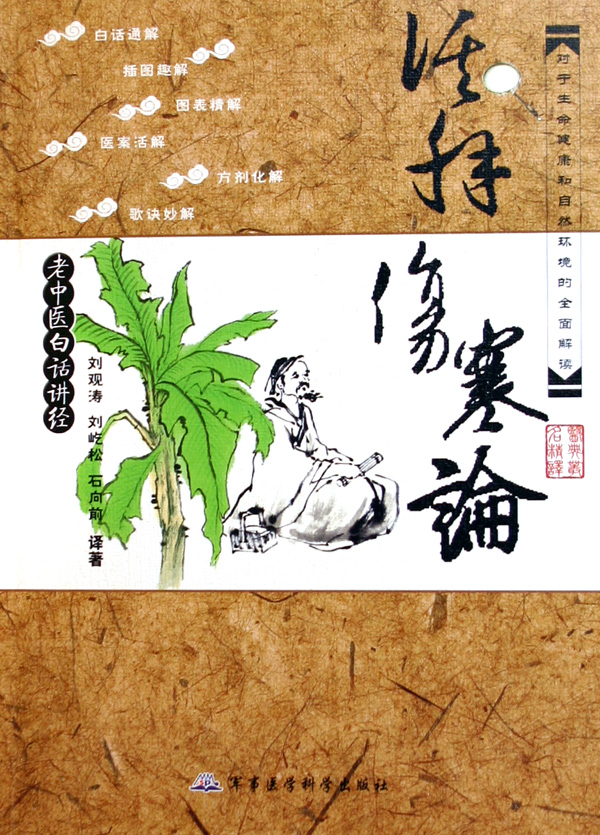 白话通解
插图趣解
图表精解
医案活解
方剂化解
歌诀妙解
对于生命健康和自然环境的全面解读
释
傷寒論
老中医白话讲经
刘观涛 刘屹松 石向前 译著
军事医学科学出版社